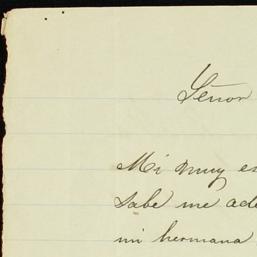 Señor
Mi muy es
sabe me ade
mi hermana